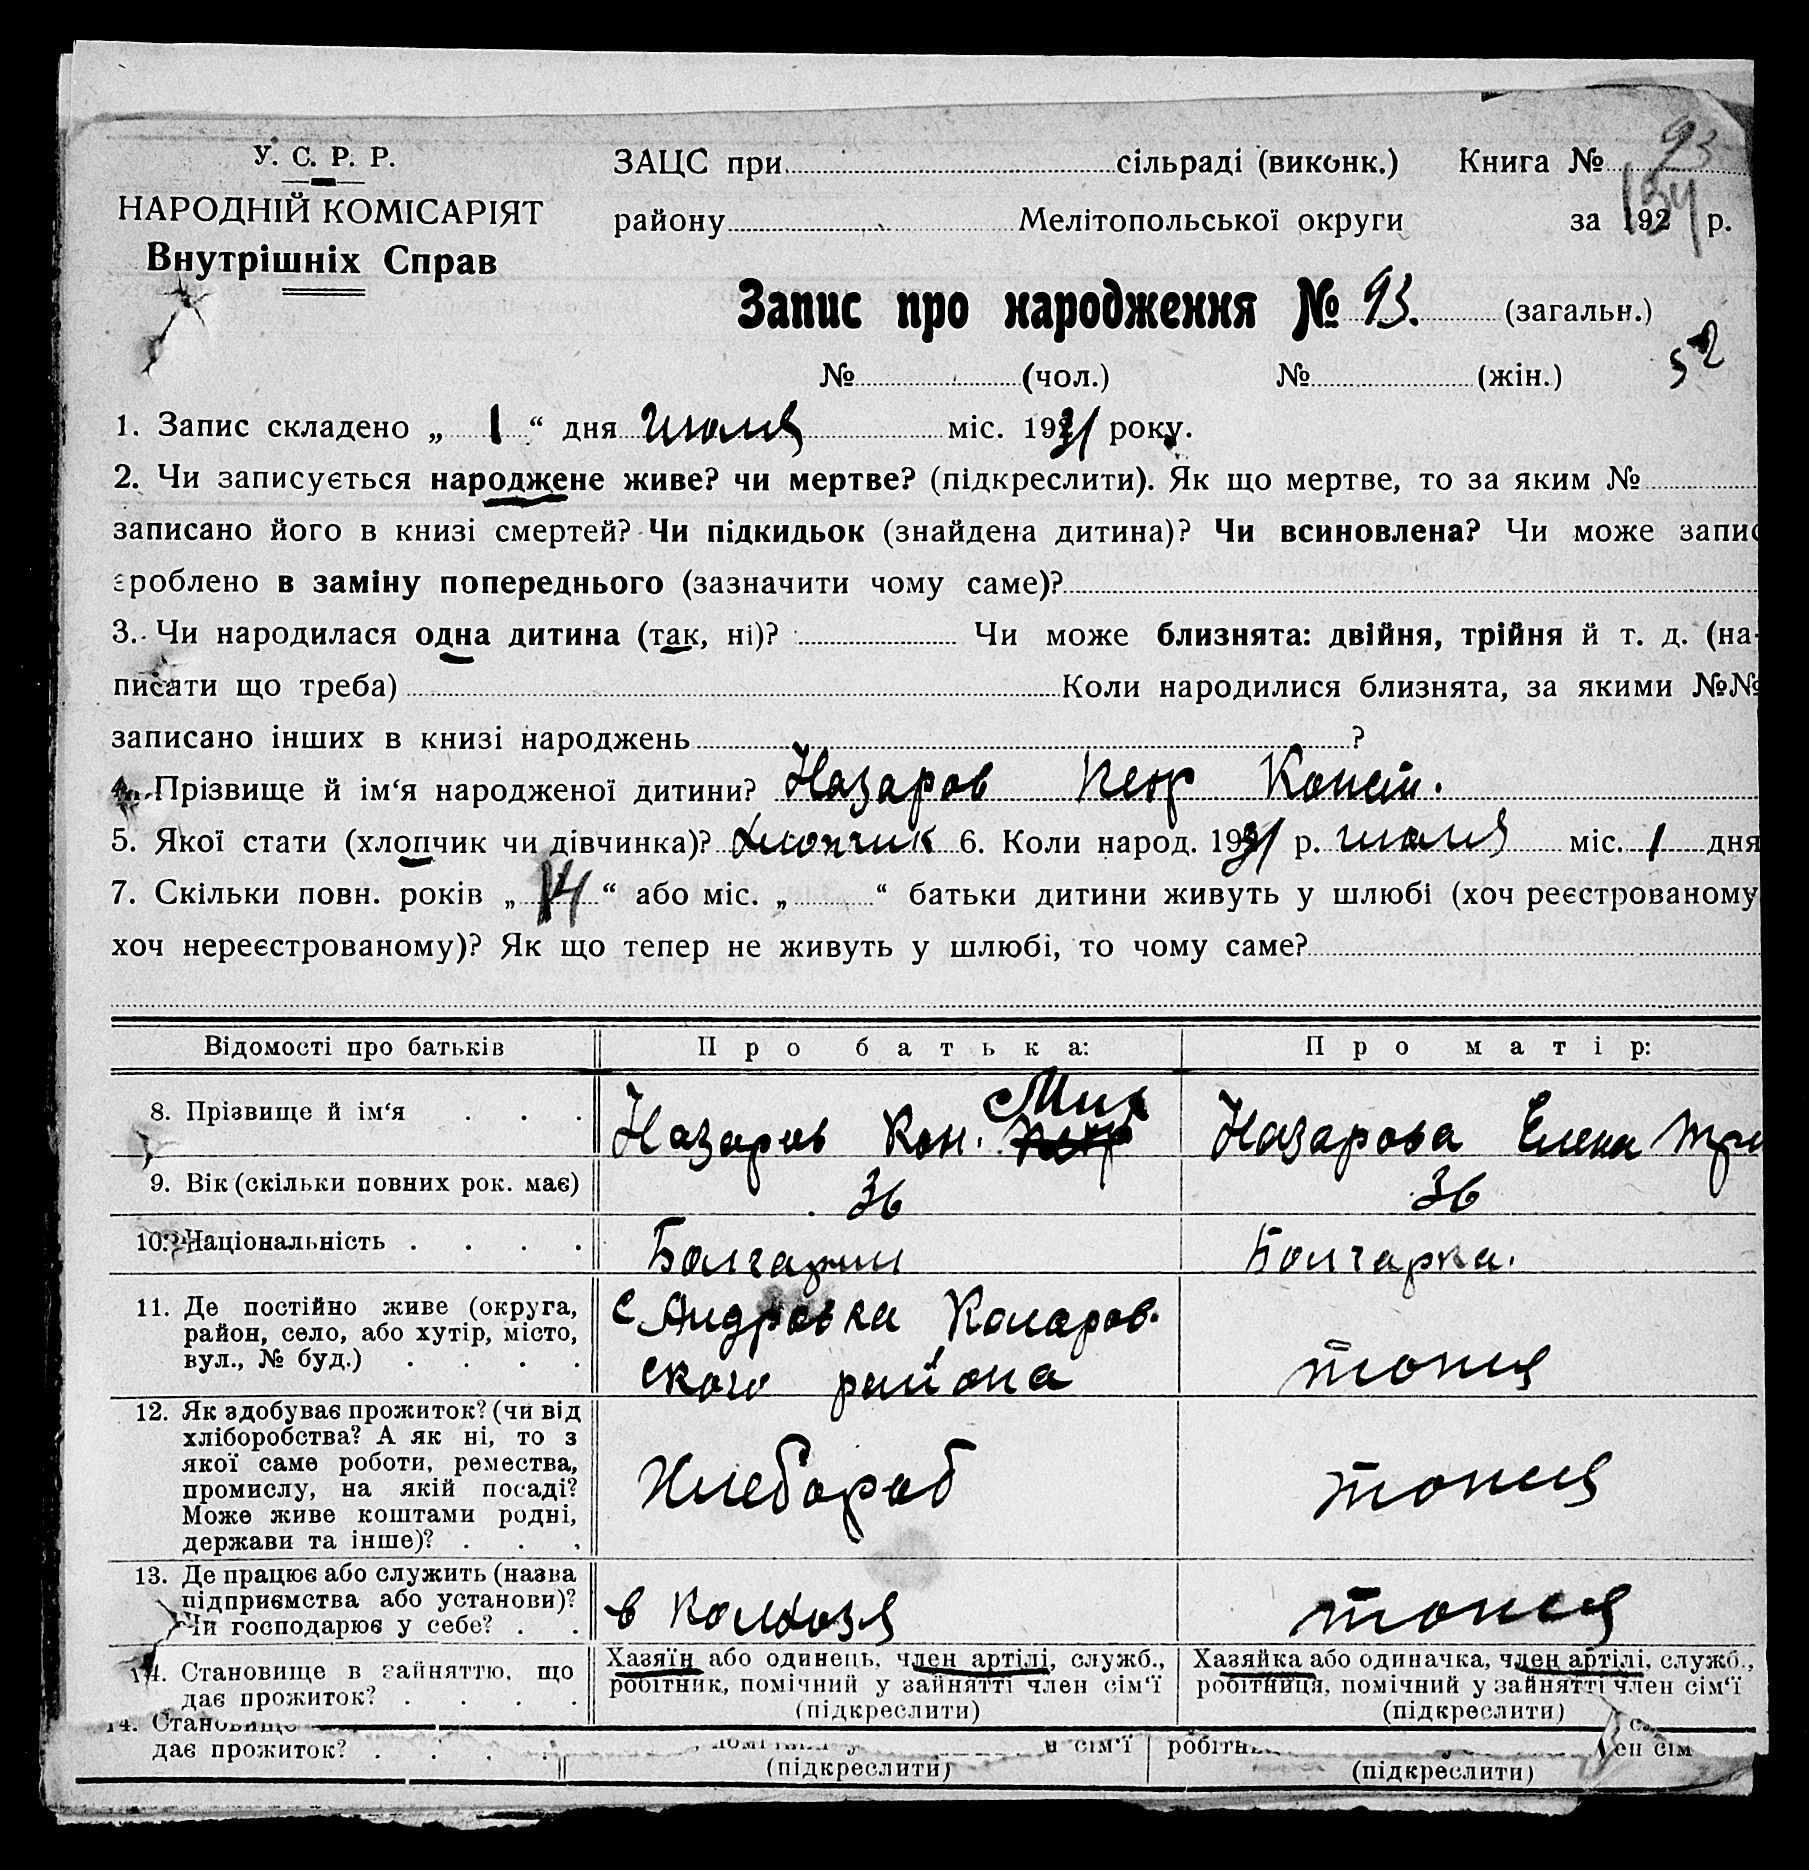 У. С. Р. Р.
НАРОДНІЙ КОМІСАРІЯТ
Внутрішніх Справ
ЗАЦС при сільраді (виконк.) Книга № 93
154
району Мелітопольської округи за 192 р.
Запис про народження № 93. (загальн.)
№ (чол.) № (жін.) 52
1. Запис складено „ 1 “ дня июля міс. 1931 року.
2. Чи записується народжене живе? чи мертве? (підкреслити). Як що мертве, то за яким №
записано його в книзі смертей? Чи підкидьок (знайдена дитина)? Чи всиновлена? Чи може запис
зроблено в заміну попереднього (зазначити чому саме)?
3. Чи народилася одна дитина (так, ні)? Чи може близнята: двійня, трійня й т. д. (на-
писати що треба) Коли народилися близнята, за якими №№
записано інших в книзі народжень ?
4. Прізвище й ім‘я народженої дитини? Назаров Петр Конст.
5. Якої стати (хлопчик чи дівчинка)? Хлопчик 6. Коли народ. 1931 р. июля міс. 1 дня
7. Скільки повн. років „ 14 “ або міс. „ “ батьки дитини живуть у шлюбі (хоч реєстрованому
хоч нереєстрованому)? Як що тепер не живуть у шлюбі, то чому саме?
Відомості про батьків Про батька: Про матір:
8. Прізвище й ім‘я . . . Назаров Кон. Мих Назарова Елена Три
9. Вік (скільки повних рок. має) 36 36
10. Національність . . . . Болгарин Болгарка.
11. Де постійно живе (округа,
район, село, або хутір, місто,
вул., № буд.) . . . .
с Андровка Коларов.
ского района
тоже
12. Як здобуває прожиток? (чи від
хліборобства? А як ні, то з
якої саме роботи, ремества,
промислу, на якій посаді?
Може живе коштами родні,
держави та інше)? . . .
Хлебороб
тоже
13. Де працює або служить (назва
підприємства або установи)?
Чи господарює у себе? . .
в колхозе
тоже
14. Становище в зайняттю, що
дає прожиток? . . . .
Хазяїн або одинець, член артілі, служб.,
робітник, помічний у зайнятті член сім‘ї
(підкреслити)
Хазяйка або одиначка, член артілі, служб.,
робітниця, помічний у зайнятті член сім‘ї
(підкреслити)
14. Становище
дає прожиток? . . . .
сім‘ї
(підкреслити)
(підкреслити)